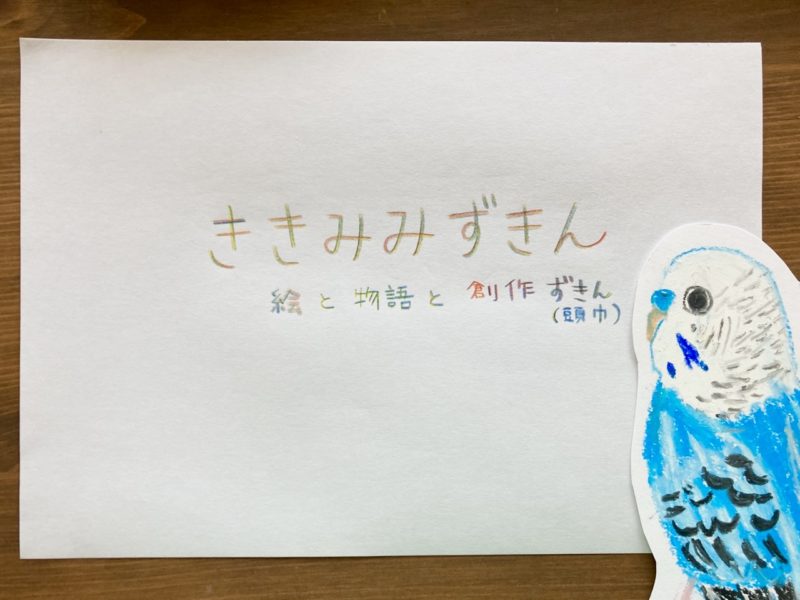 ききみみずきん
絵と物語と創作ずきん
(頭巾)